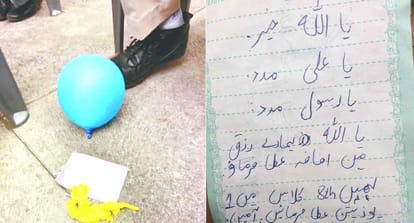 یا اللّٰہ خیر.
یا علی مدد.
یا رسول مدد.
یا اللّٰہ ہمارے رزق
میں اضافہ عطا فرما۔
8th کلاس میں 1
پوزیشن عطا فرمائیں. آمین.